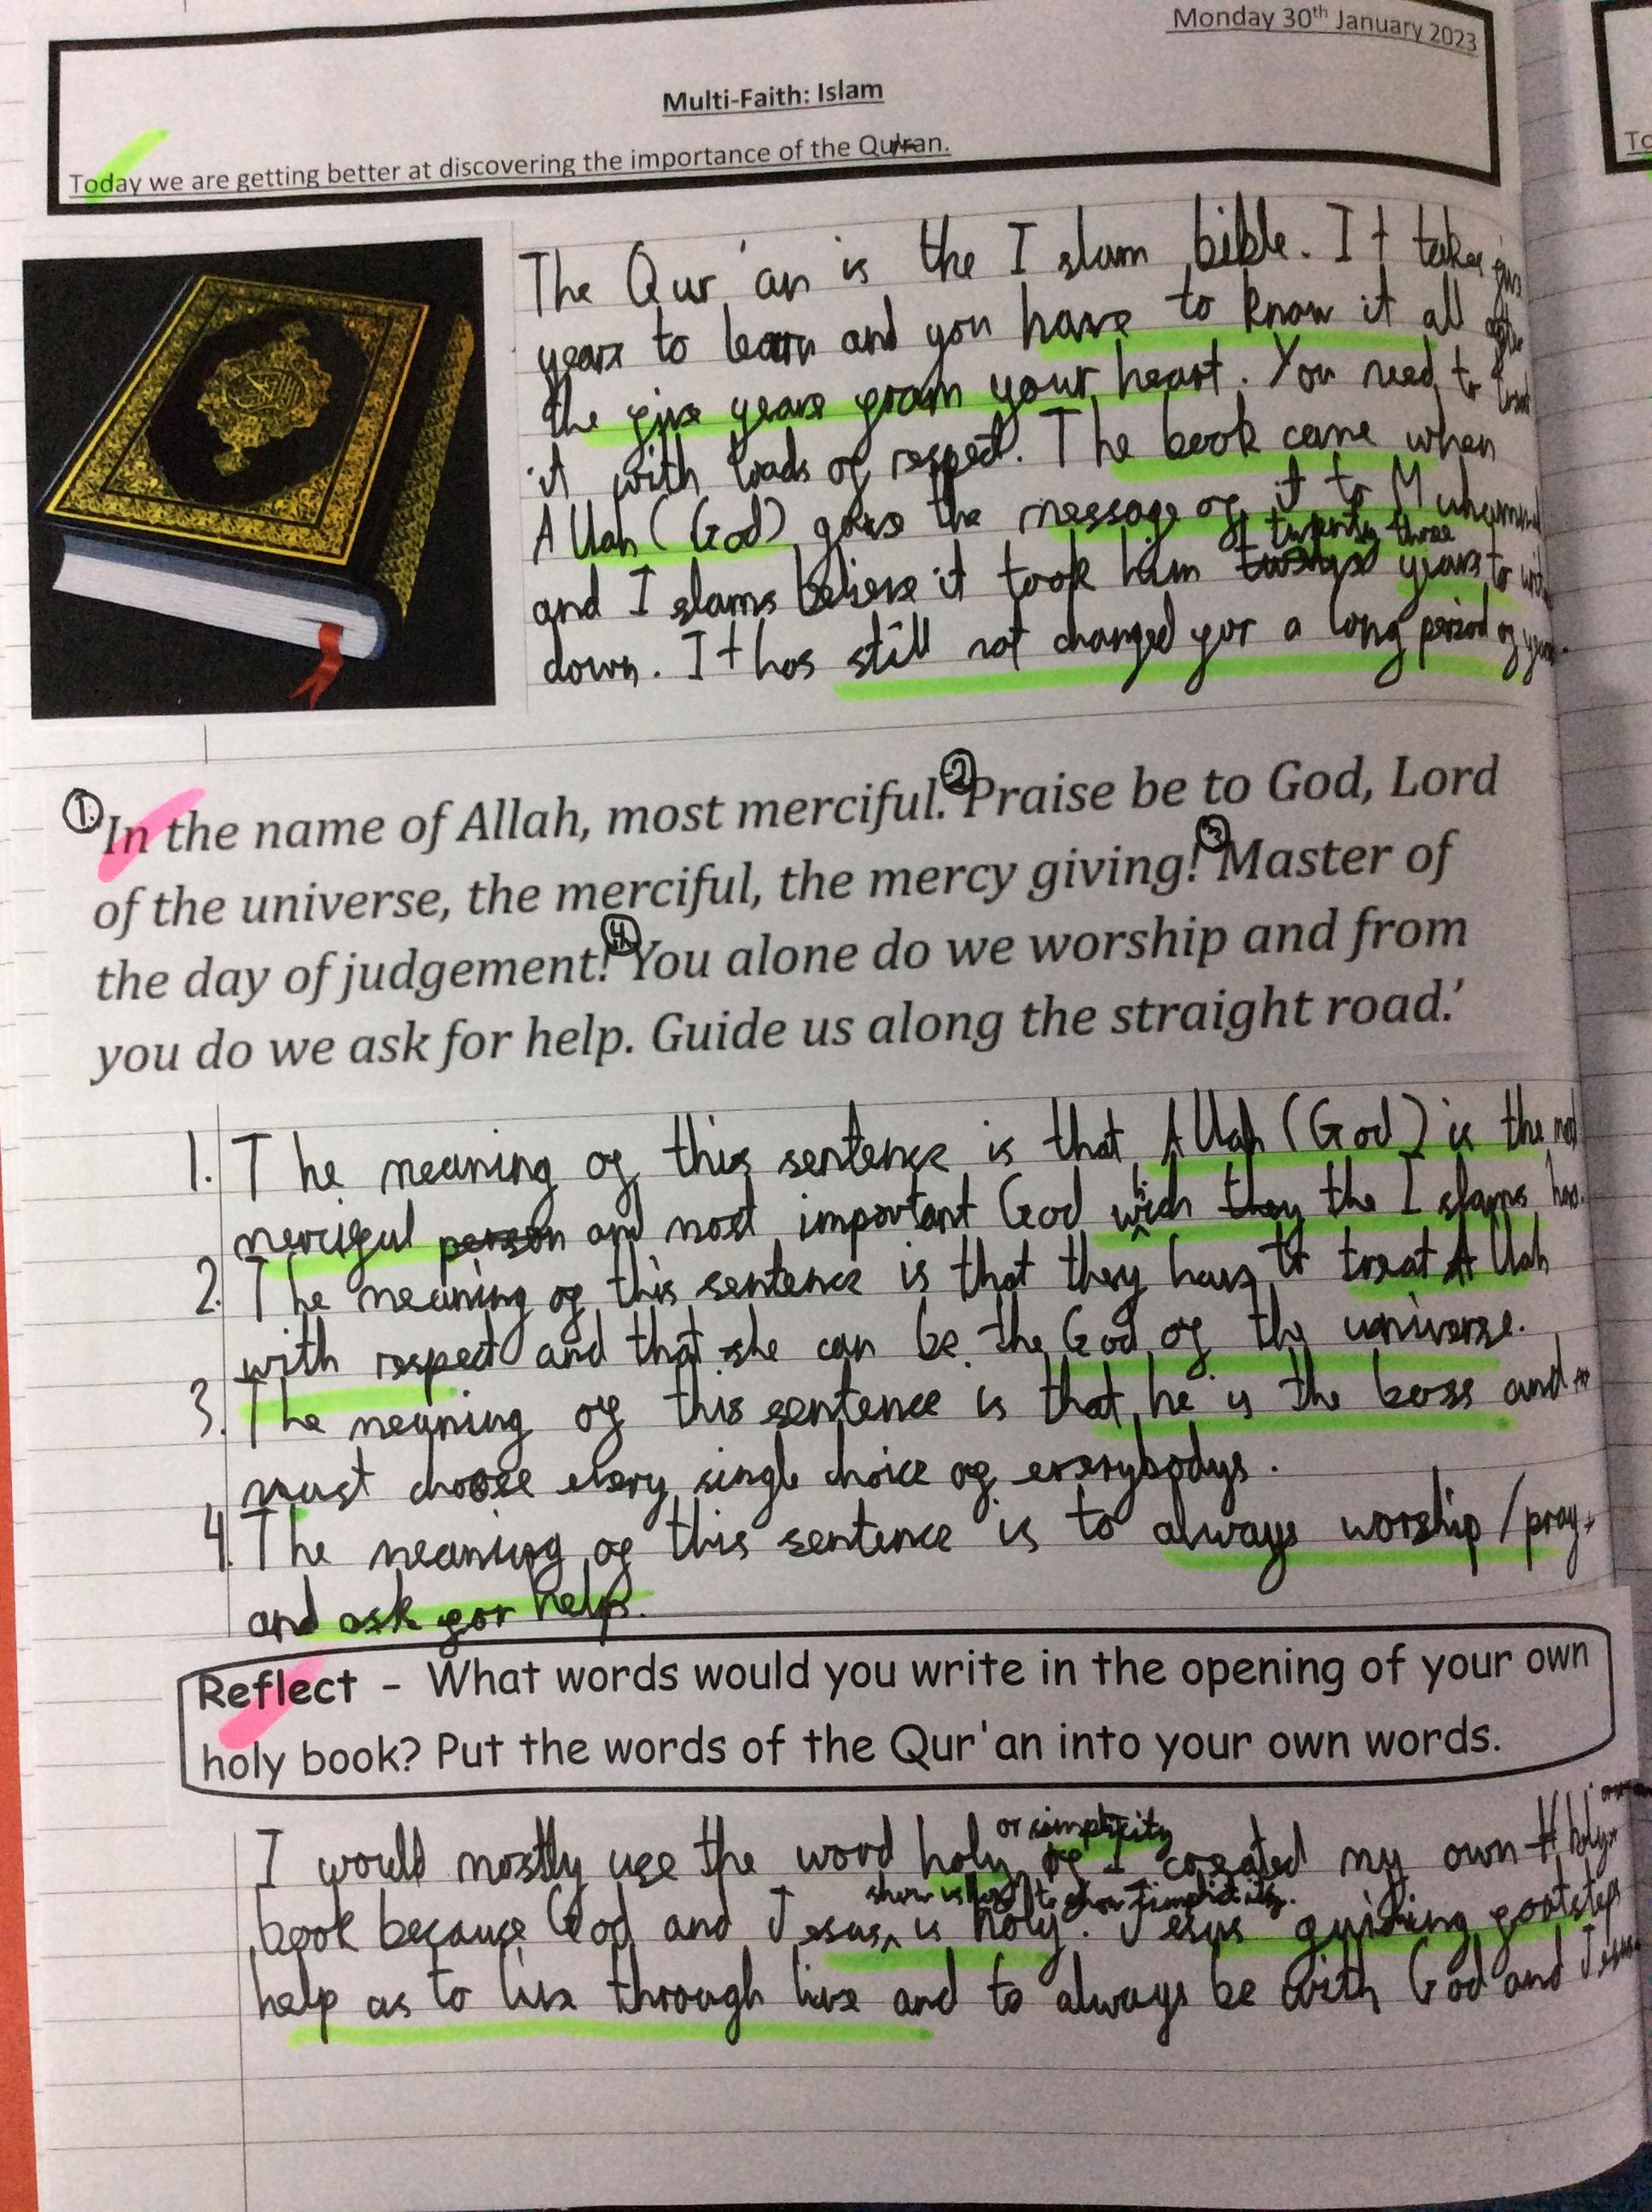 Monday 30th January 2023
Multi-Faith: Islam
Today we are getting better at discovering the importance of the Qu'ran.
The Qur'an is the Islam bible. It takes five
years to learn and you have to know it all after
the five years from your heart. You need to treat
it with loads of respect. The book came when
Allah (God) gave the message of it to Muhammad
and Islams believe it took him twenty three years to
down. It has still not changed for a long period of years.
1. In the name of Allah, most merciful. 2 Praise be to God, Lord
of the universe, the merciful, the mercy giving! 3 Master of
the day of judgement! 4 You alone do we worship and from
you do we ask for help. Guide us along the straight road.'
1. The meaning of this sentence is that Allah (God) is the most
merciful person and most important God wich they the Islams has.
2. The meaning of this sentence is that they have to treat Allah
with respect and that she can be the God of the universe.
3. The meaning of this sentence is that he is the boss and
must choose every single choice of everybodys.
4. The meaning of this sentence is to always worship / pray
and ask for help.
Reflect - What words would you write in the opening of your own
holy book? Put the words of the Qur'an into your own words.
I would mostly use the word holy or simplicity if I created my own holy
book because God and Jesus is holy. Jesus guiding footsteps
help as to live through live and to always be with God and Jesus